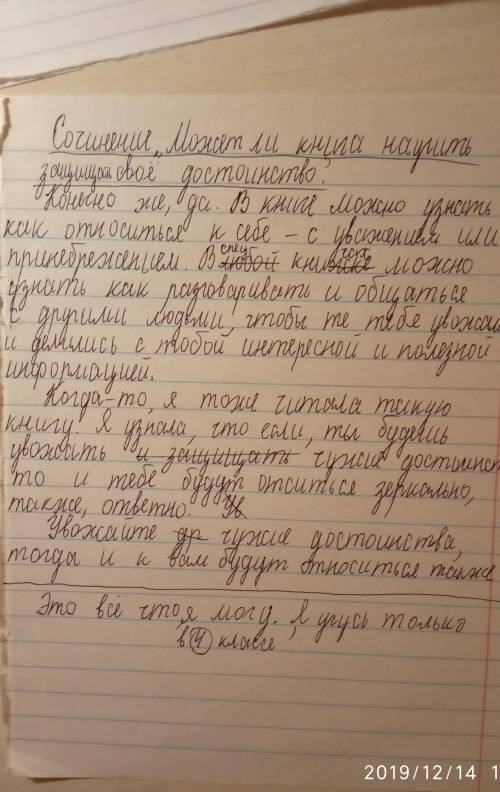 Сочинение „Может ли книга научить
защищать своё достоинство.
Конечно же, да. В книге можно узнать
как относиться к себе – с уважением или
принебрежением. В спец любой книжке гах можно
узнать как разговаривать и общаться
с другими людьми, чтобы те тебя уважал
и делились с тобой интересной и полезной
информацией.
Когда-то, я тоже читала такую
книгу. Я узнала, что если, ты будешь
уважать и защищать чужие достоинст
то и тебе будут отситься зеркально,
также, ответно. Ув
Уважайте др чужие достоинства,
тогда и к вам будут относиться также
Это всё что я могу. Я учусь только
в 4 классе
2019/12/14 1